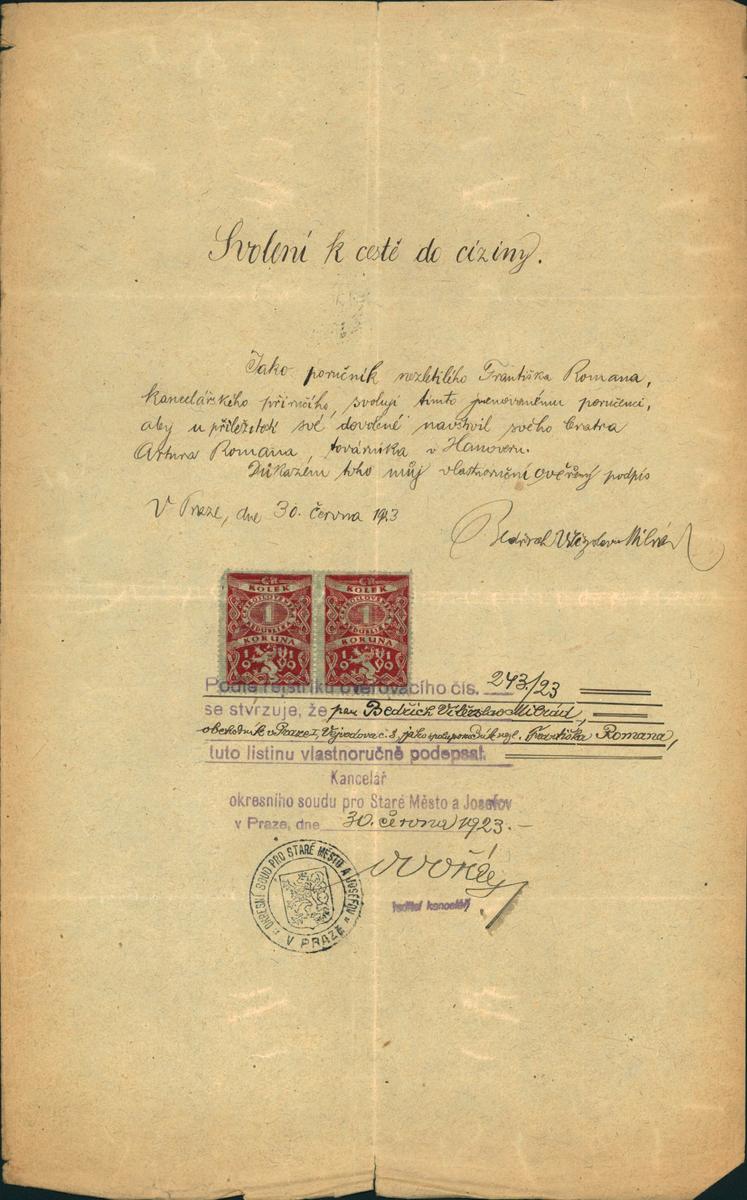 Svolení k cestě do ciziny.
Jako poručník nezletilého Františka Romana,
kancelářského příručího, svoluji tímto jmenovanému poručenci,
aby u příležitosti své dovolené navštívil svého bratra
Artura Romana, továrníka v Hanoveru.
Důkazem toho můj vlastnoruční ověřený podpis
V Praze, dne 30. června 1923
Bedřich Vítězslav Milrád
KOLEK KOLEK
1 1
KORUNA KORUNA
1919 1919
Podle rejstříku ověřovacího čís. 243/23
se stvrzuje, že pan Bedřich Vítězslav Milrád,
obchodník v Praze I, Vejvodova č. 8, jako spoluporučník nezl. Františka Romana,
tuto listinu vlastnoručně podepsal.
Kancelář
okresního soudu pro Staré Město a Josefov
v Praze, dne 30. června 1923.-
OKRESNÍ SOUD PRO STARÉ MĚSTO A JOSEFOV
V PRAZE
ředitel kanceláře